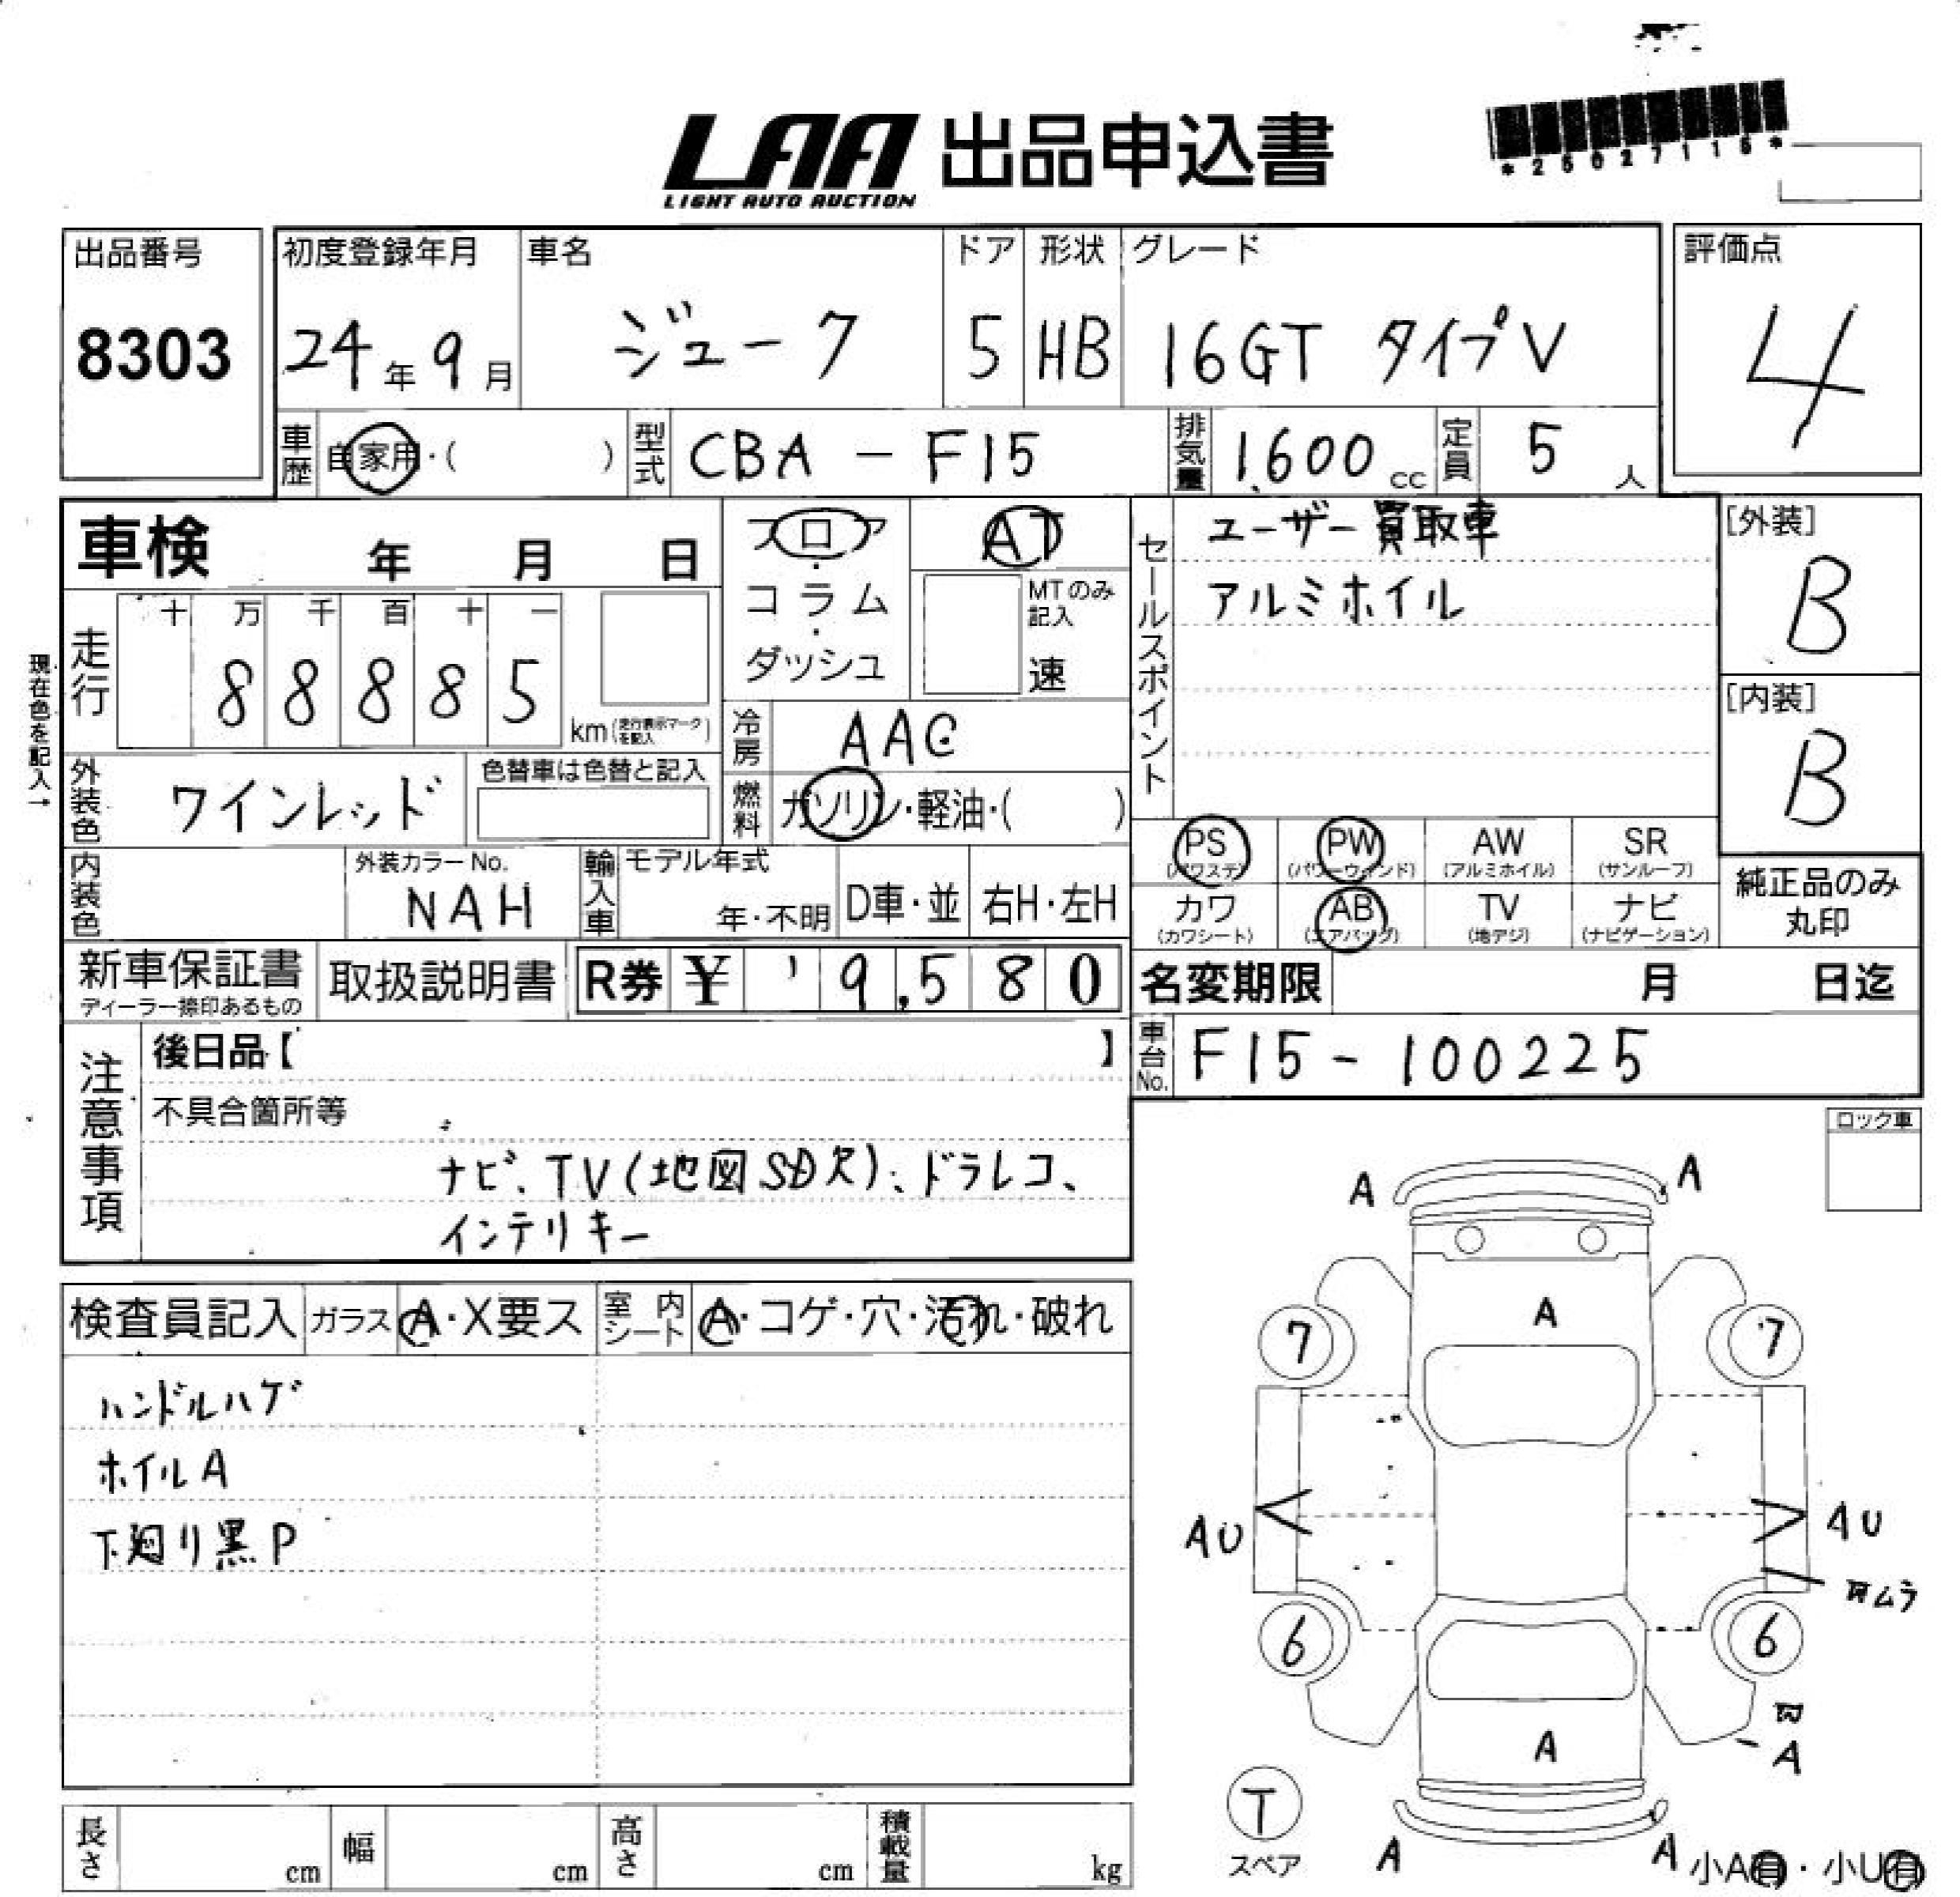 LAA 出品申込書
LIGHT AUTO AUCTION
出品番号
8303
初度登録年月
24年9月
車名
ジューク
ドア
5
形状
HB
グレード
16GT タイプV
評価点
4
車歴
自家用・( )
型式
CBA - F15
排気量
1,600 cc
定員
5 人
車検 年 月 日
走行
十 万 千 百 十 一
8 8 8 8 5
km(走行表示マークを記入)
現在色を記入→
外装色
ワインレッド
色替車は色替と記入
内装色
外装カラーNo.
NAH
輸入車
モデル年式
年・不明
D車・並
右H・左H
フロア
・
コラム
・
ダッシュ
AT
MTのみ
記入
速
冷房
AAC
燃料
ガソリン・軽油・( )
セールスポイント
ユーザー買取車
アルミホイル
[外装]
B
[内装]
B
PS
(パワステ)
PW
(パワーウィンド)
AW
(アルミホイル)
SR
(サンルーフ)
カワ
(カワシート)
AB
(エアバッグ)
TV
(地デジ)
ナビ
(ナビゲーション)
純正品のみ
丸印
新車保証書
ディーラー捺印あるもの
取扱説明書
R券 ¥ 9,580
名変期限 月 日迄
車台No.
F15-100225
注意事項
後日品【 】
不具合箇所等
ナビ、TV(地図SD欠)、ドラレコ、
インテリキー
ロック車
検査員記入
ガラス
A・X要ス
室内シート
A・コゲ・穴・汚れ・破れ
ハンドルハゲ
ホイルA
下廻り黒P
A A
A
7 7
AU AU
6 6
A
A
T
スペア
A A
小A有・小U有
長さ cm
幅 cm
高さ cm
積載量 kg